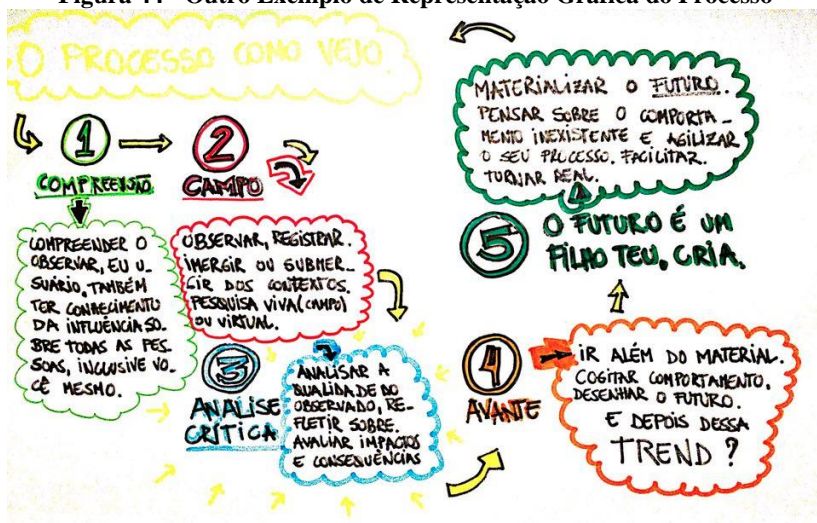 Figura 44 - Outro Exemplo de Representação Gráfica do Processo
O PROCESSO COMO VEJO.
1
COMPREENSÃO
COMPREENDER O
OBSERVAR, EU U-
SUÁRIO, TAMBÉM
TER CONHECIMENTO
DA INFLUÊNCIA SO-
BRE TODAS AS PES-
SOAS, INCLUSIVE VO-
CÊ MESMO.
2
CAMPO
OBSERVAR, REGISTRAR.
IMERGIR OU SUBMER-
GIR DOS CONTEXTOS.
PESQUISA VIVA (CAMPO)
OU VIRTUAL.
3
ANALISE
CRÍTICA
ANALISAR A
QUALIDADE DO
OBSERVADO, RE-
FLETIR SOBRE.
AVALIAR IMPACTOS
E CONSEQUÊNCIAS
4
AVANTE
IR ALÉM DO MATERIAL.
COGITAR COMPORTAMENTO.
DESENHAR O FUTURO.
E DEPOIS DESSA
TREND?
5
O FUTURO É UM
FILHO TEU, CRIA.
MATERIALIZAR O FUTURO.
PENSAR SOBRE O COMPORTA-
MENTO INEXISTENTE E AGILIZAR
O SEU PROCESSO. FACILITAR.
TORNAR REAL.